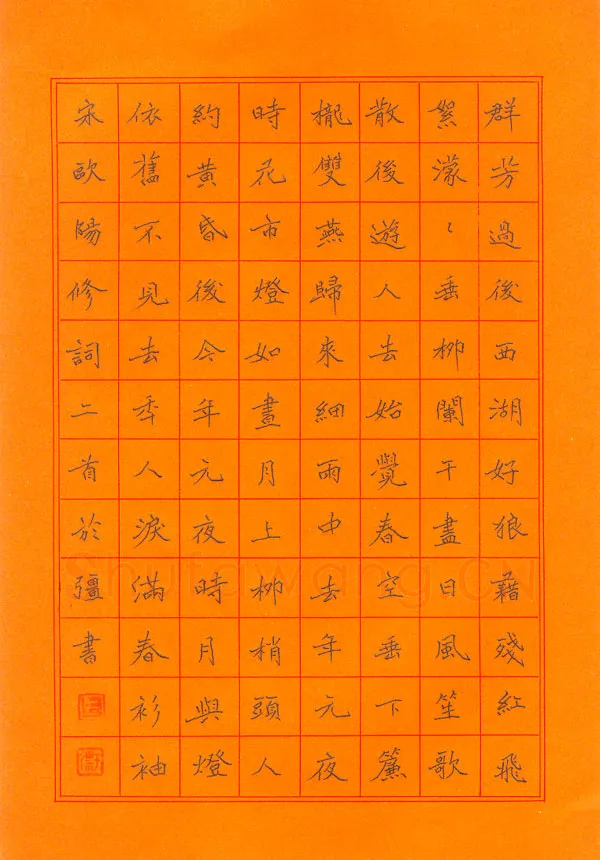 群芳過後西湖好狼藉殘紅飛
絮濛〻垂柳闌干盡日風笙歌
散後遊人去始覺春空垂下簾
櫳雙燕歸來細雨中去年元夜
時花市燈如晝月上柳梢頭人
約黃昏後今年元夜時月與燈
依舊不見去秊人淚滿春衫袖
宋歐陽修詞二首於彊書
Shufawang.CN